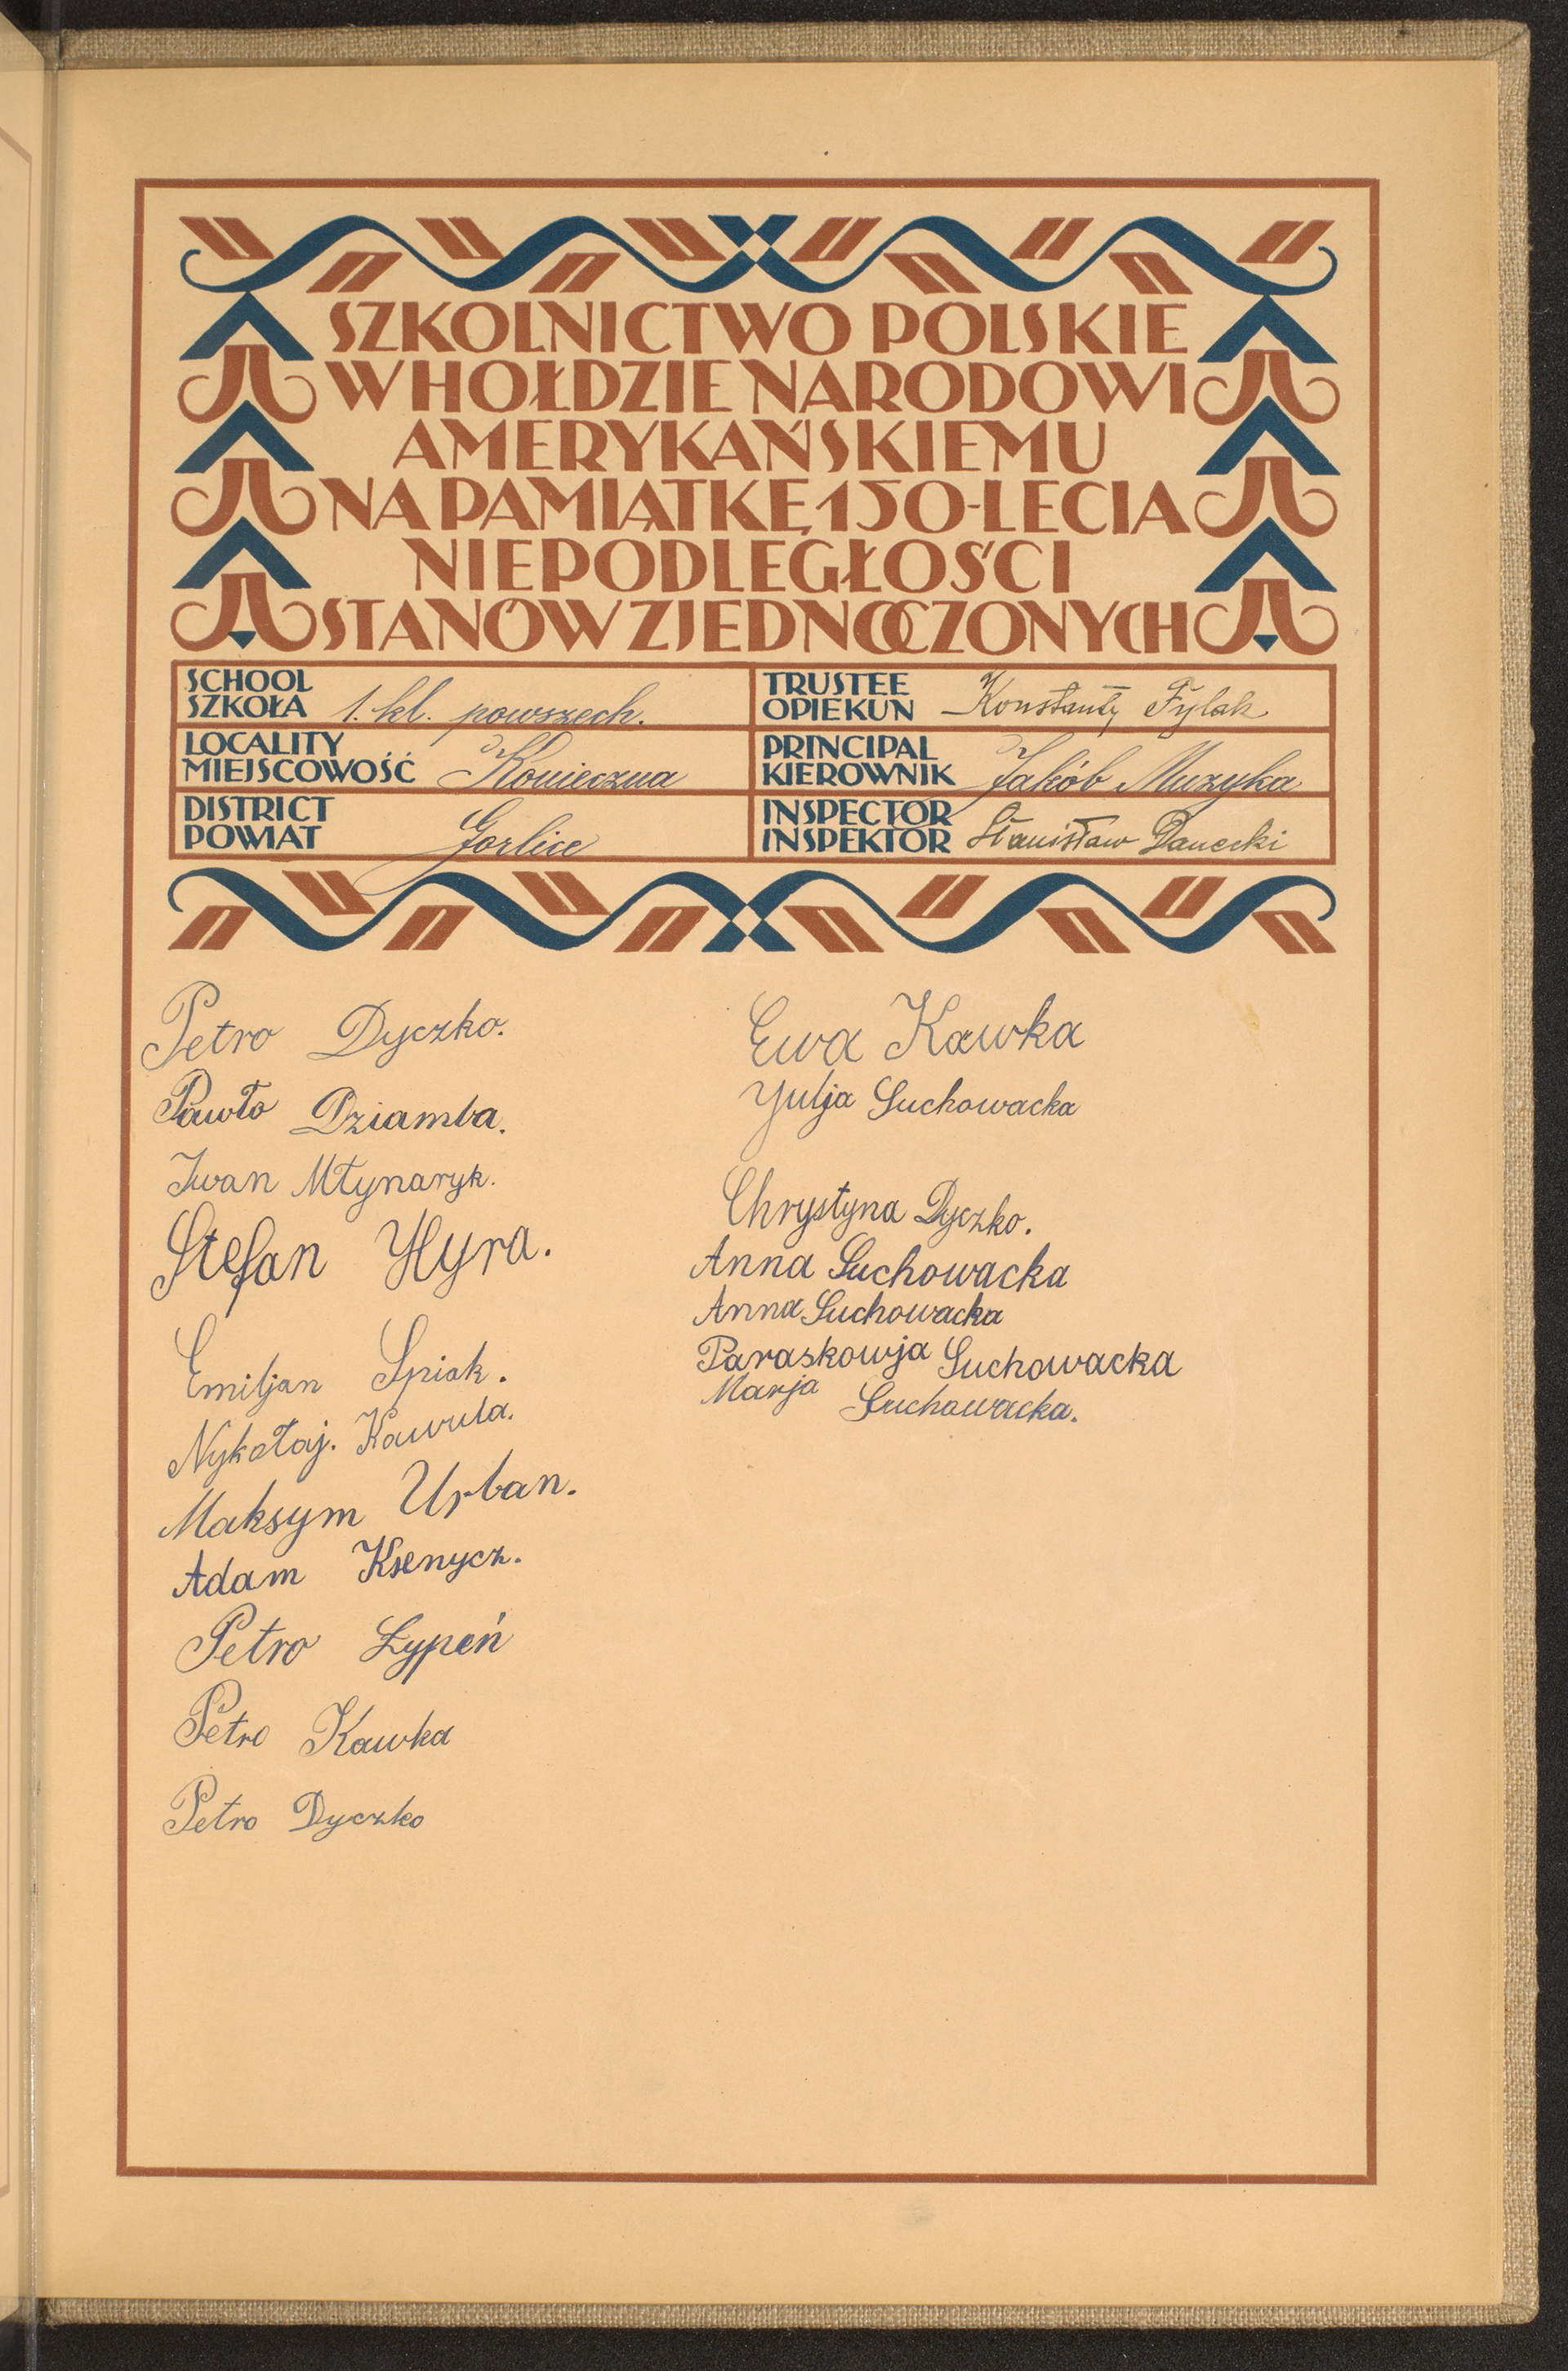 SZKOLNICTWO POLSKIE
W HOŁDZIE NARODOWI
AMERYKAŃSKIEMU
NA PAMIĄTKĘ 150-LECIA
NIEPODLEGŁOŚCI
STANÓW ZJEDNOCZONYCH
SCHOOL
SZKOŁA 1. kl. powszech.
LOCALITY
MIEJSCOWOŚĆ Konieczna
DISTRICT
POWIAT Gorlice
TRUSTEE
OPIEKUN Konstanty Fylak
PRINCIPAL
KIEROWNIK Jakób Muzyka
INSPECTOR
INSPEKTOR Stanisław Panecki
Petro Dyczko.
Pawło Dziamba.
Iwan Młynaryk.
Stefan Hyra.
Emiljan Spiak.
Nykołaj. Kawula.
Maksym Urban.
Adam Ksenycz.
Petro Łypeń
Petro Kawka
Petro Dyczko
Ewa Kawka
Yulja Suchowacka
Chrystyna Dyczko.
Anna Suchowacka
Anna Suchowacka
Paraskowja Suchowacka
Marja Suchowacka.